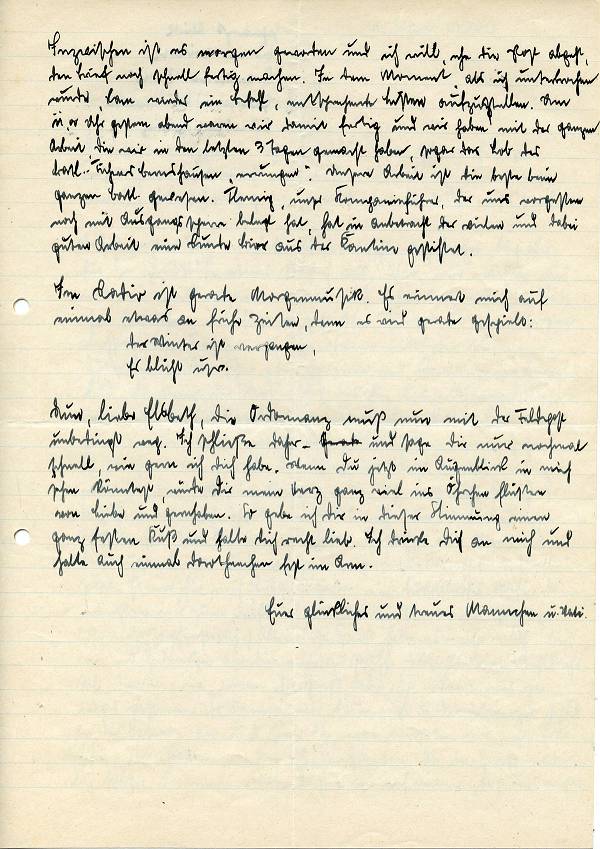 Inzwischen ist es morgen geworden und ich will, ehe die Post abgeht,
den Brief noch schnell fertig machen. In dem Moment, als ich unterbrochen
wurde, kam wieder ein Befehl, entsprechende Listen aufzustellen. Um
Uhr gestern abend waren wir damit fertig und wir haben mit der ganzen
Arbeit die wir in den letzten 3 Tagen gemacht haben, sogar das Lob des
Batl. errungen". Unsere Arbeit ist die beste beim
ganzen Batl. gewesen. unser Kompanieführer, der uns vorgestern
noch mit Ausgangssperre belegt hat, hat in Anbetracht der vielen und dabei
guten Arbeit eine Runde Bier aus der Kantine gestiftet.
Im Radio ist gerade Morgenmusik. Es erinnert mich auf
einmal etwas an frühe Zeiten, denn es wird gerade gespielt:
Der Winter ist vergangen,
Es blüht
Nun, liebe Elsbeth, die Ordonnanz muß nun mit der Feldpost
unbedingt weg. Ich schließe daher und sage Dir nur nochmal
schnell, wie gern ich dich habe. Wenn Du jetzt im Augenblick in mich
sehen könntest, würde Dir mein Herz ganz viel ins Öhrchen flüstern
von Liebe und Gernhaben. So gebe ich Dir in dieser Stimmung einen
ganz festen Kuß und halte Dich recht lieb. Ich drücke Dich an mich und
halte auch einmal Dorotheechen fest im Arm.
Euer glückliches und treues Männchen u. Vati.